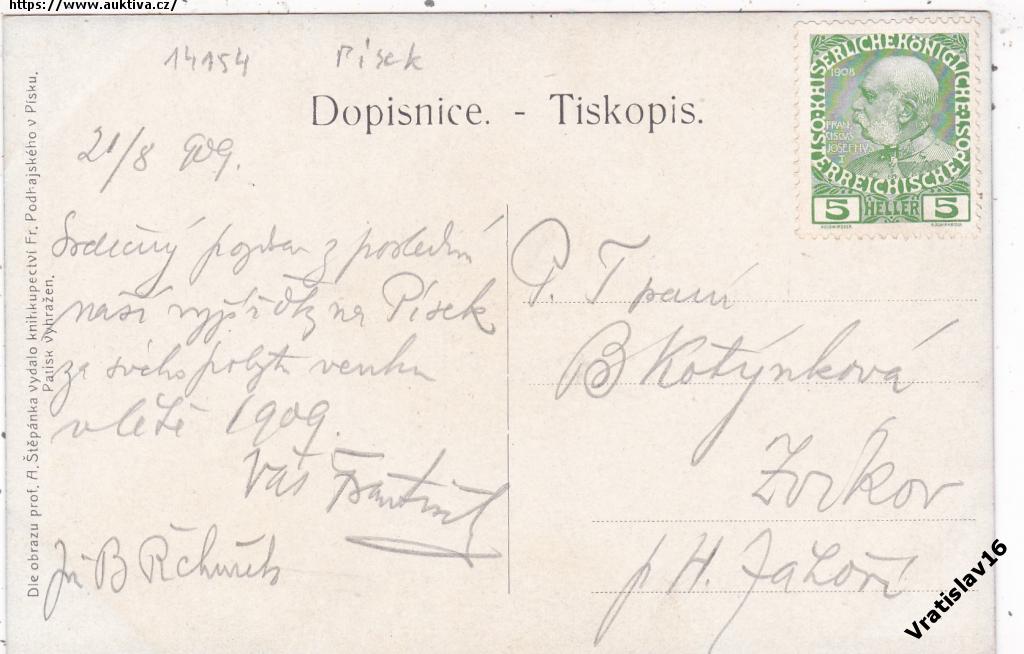 https://www.auktiva.cz/
14154 Písek
Dopisnice. - Tiskopis.
21/8 909.
Srdečný pozdrav z poslední
naší vyjížďky na Písek
za svého pobytu venku
v létě 1909.
Váš František
P. T paní
B Kotýnková
Zvíkov
p H. Záhoří
ÖSTERREICHISCHE POST KAISERLICHE KÖNIGLICHE
1908
FRAN
CISCUS
JOSEPHUS
I
5 HELLER 5
Dle obrazu prof. A. Štěpánka vydalo knihkupectví Fr. Podhajského v Písku.
Patisk vyhražen.
Vratislav16